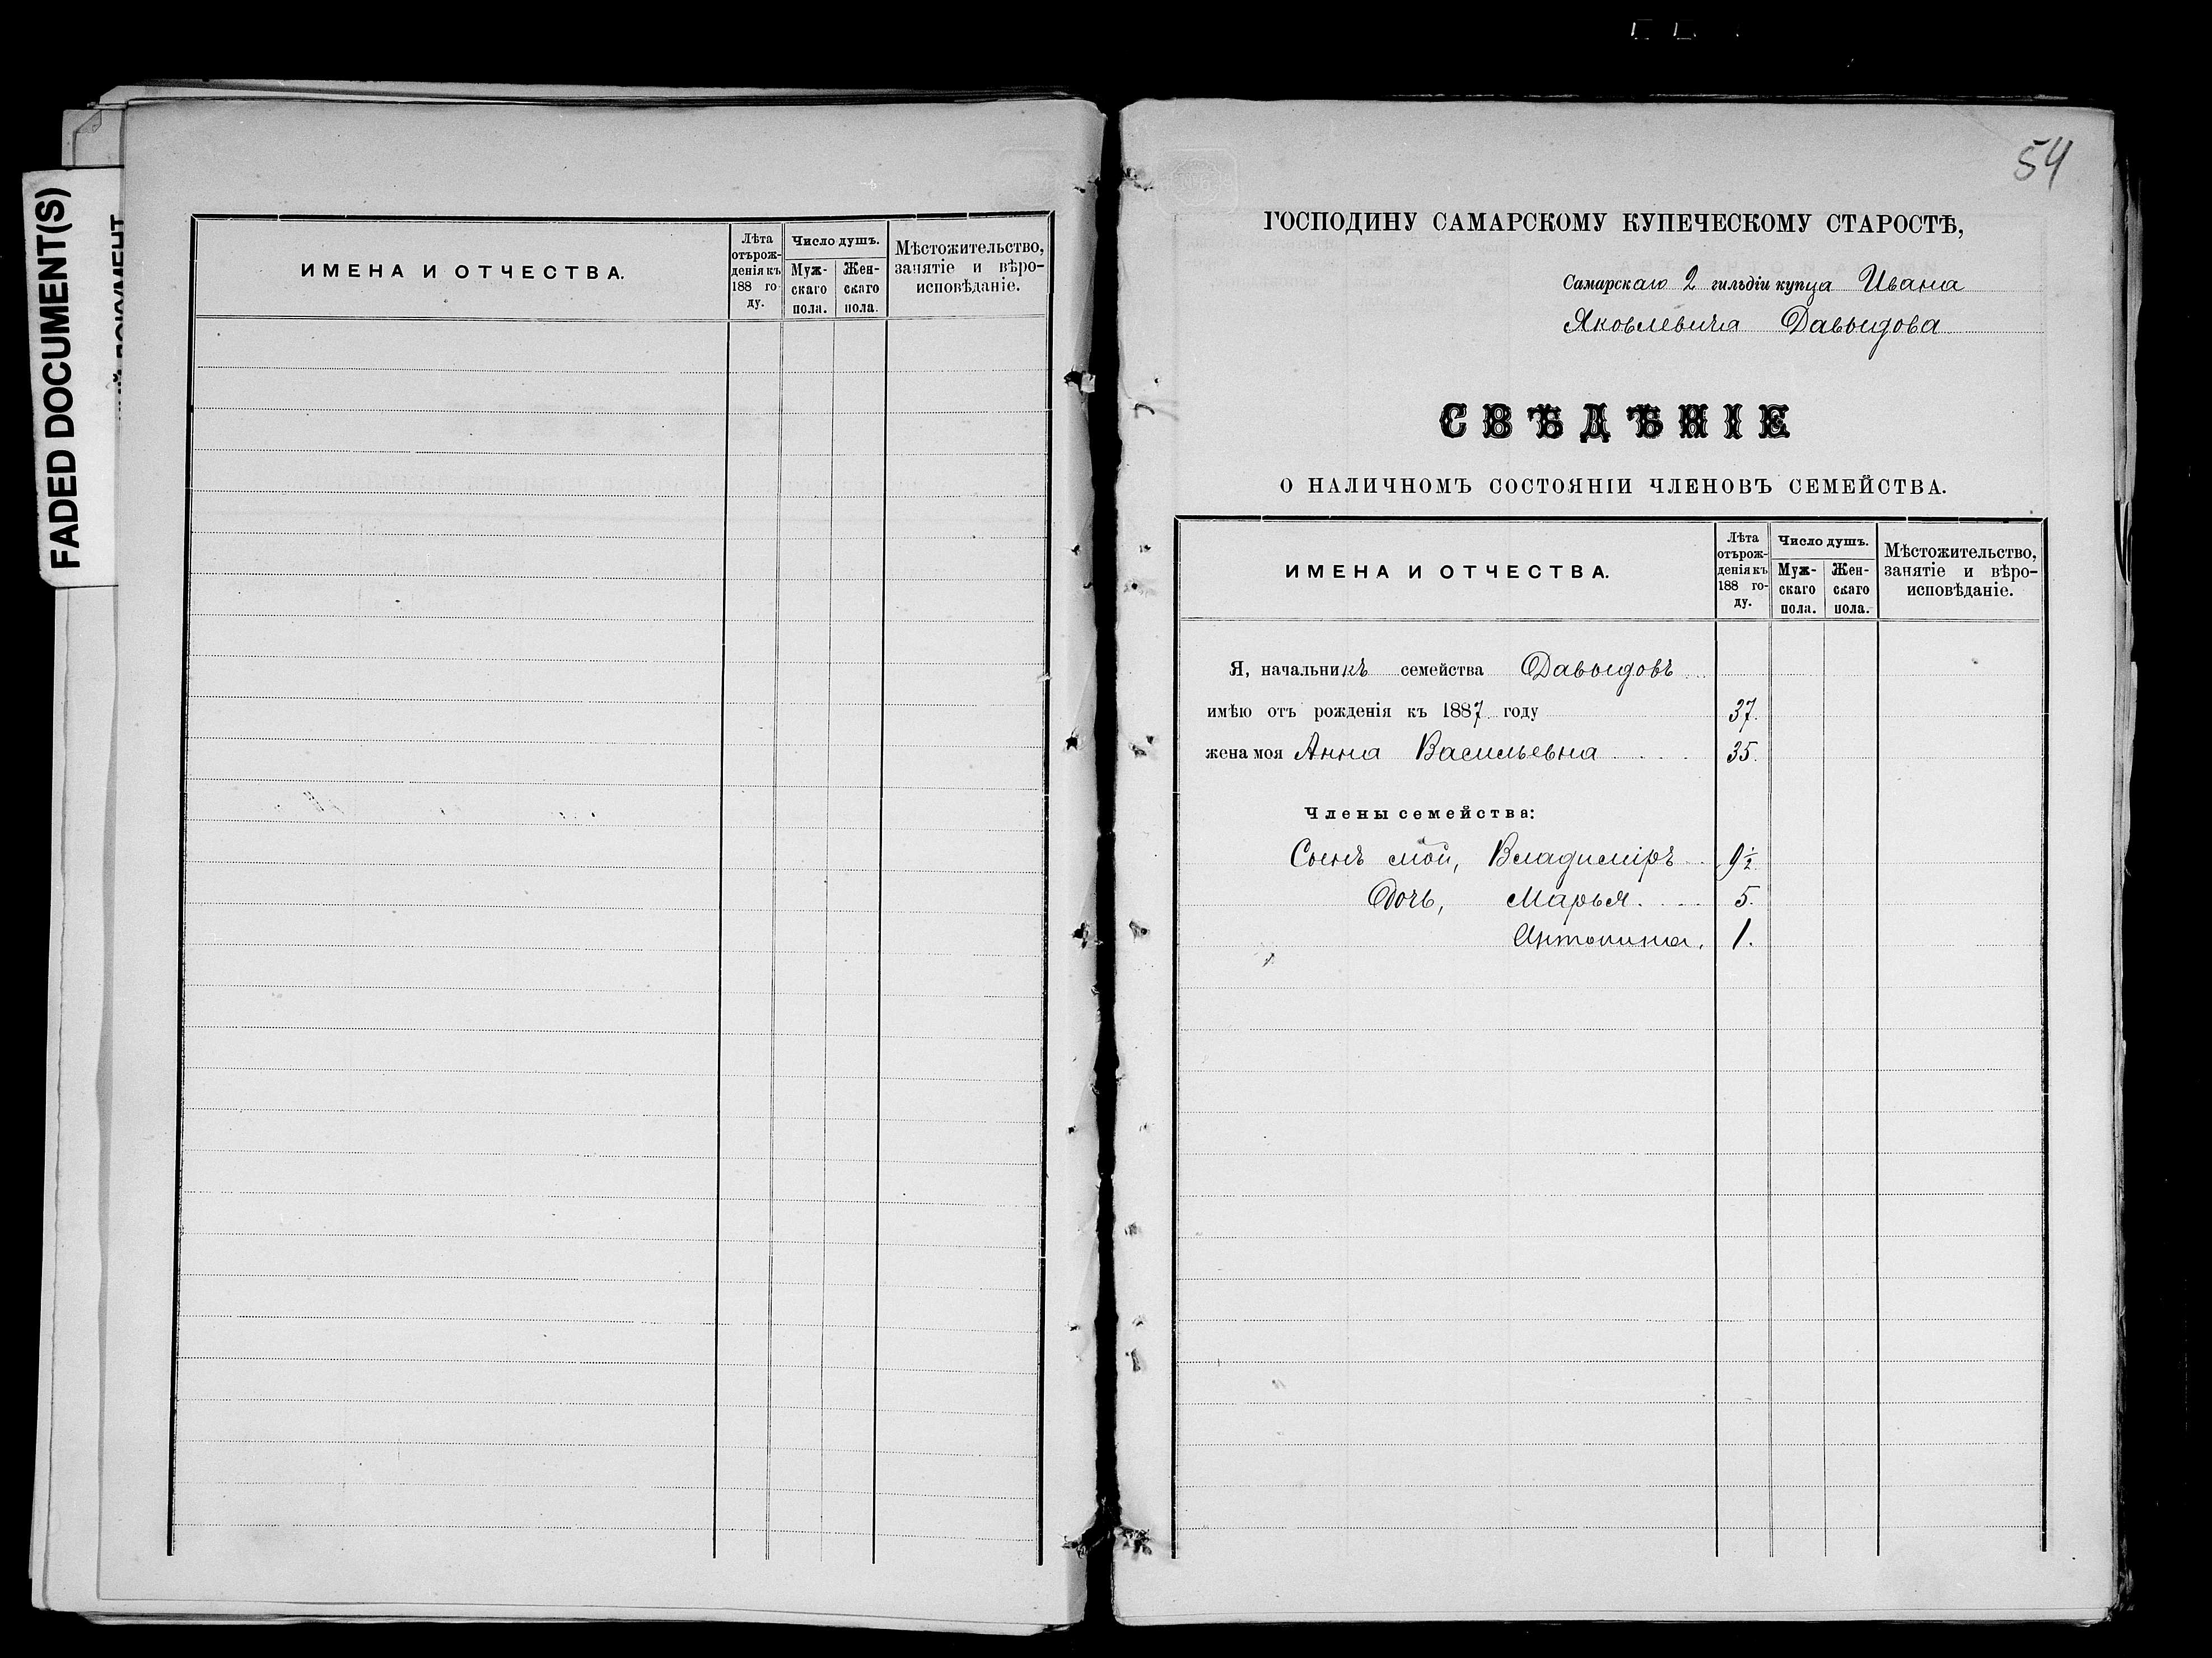 FADED DOCUMENT(S)
ИМЕНА И ОТЧЕСТВА.
Лѣта отъ рожденія къ 188 году.
Число душъ.
Мужскаго пола.
Женскаго пола.
Мѣстожительство, занятіе и вѣроисповѣданіе.
54
ГОСПОДИНУ САМАРСКОМУ КУПЕЧЕСКОМУ СТАРОСТѢ,
Самарскаго 2 гильдіи купца Ивана
Яковлевича Давыдова
СВѢДѢНІЕ
О НАЛИЧНОМЪ СОСТОЯНІИ ЧЛЕНОВЪ СЕМЕЙСТВА.
ИМЕНА И ОТЧЕСТВА.
Лѣта отъ рожденія къ 188 году.
Число душъ.
Мужскаго пола.
Женскаго пола.
Мѣстожительство, занятіе и вѣроисповѣданіе.
Я, начальникъ семейства Давыдовъ
имѣю отъ рожденія къ 1887 году 37.
жена моя Анна Васильевна 35.
Члены семейства:
Сынъ мой, Владиміръ 9½
Дочь, Марья 5.
Антонина, 1.